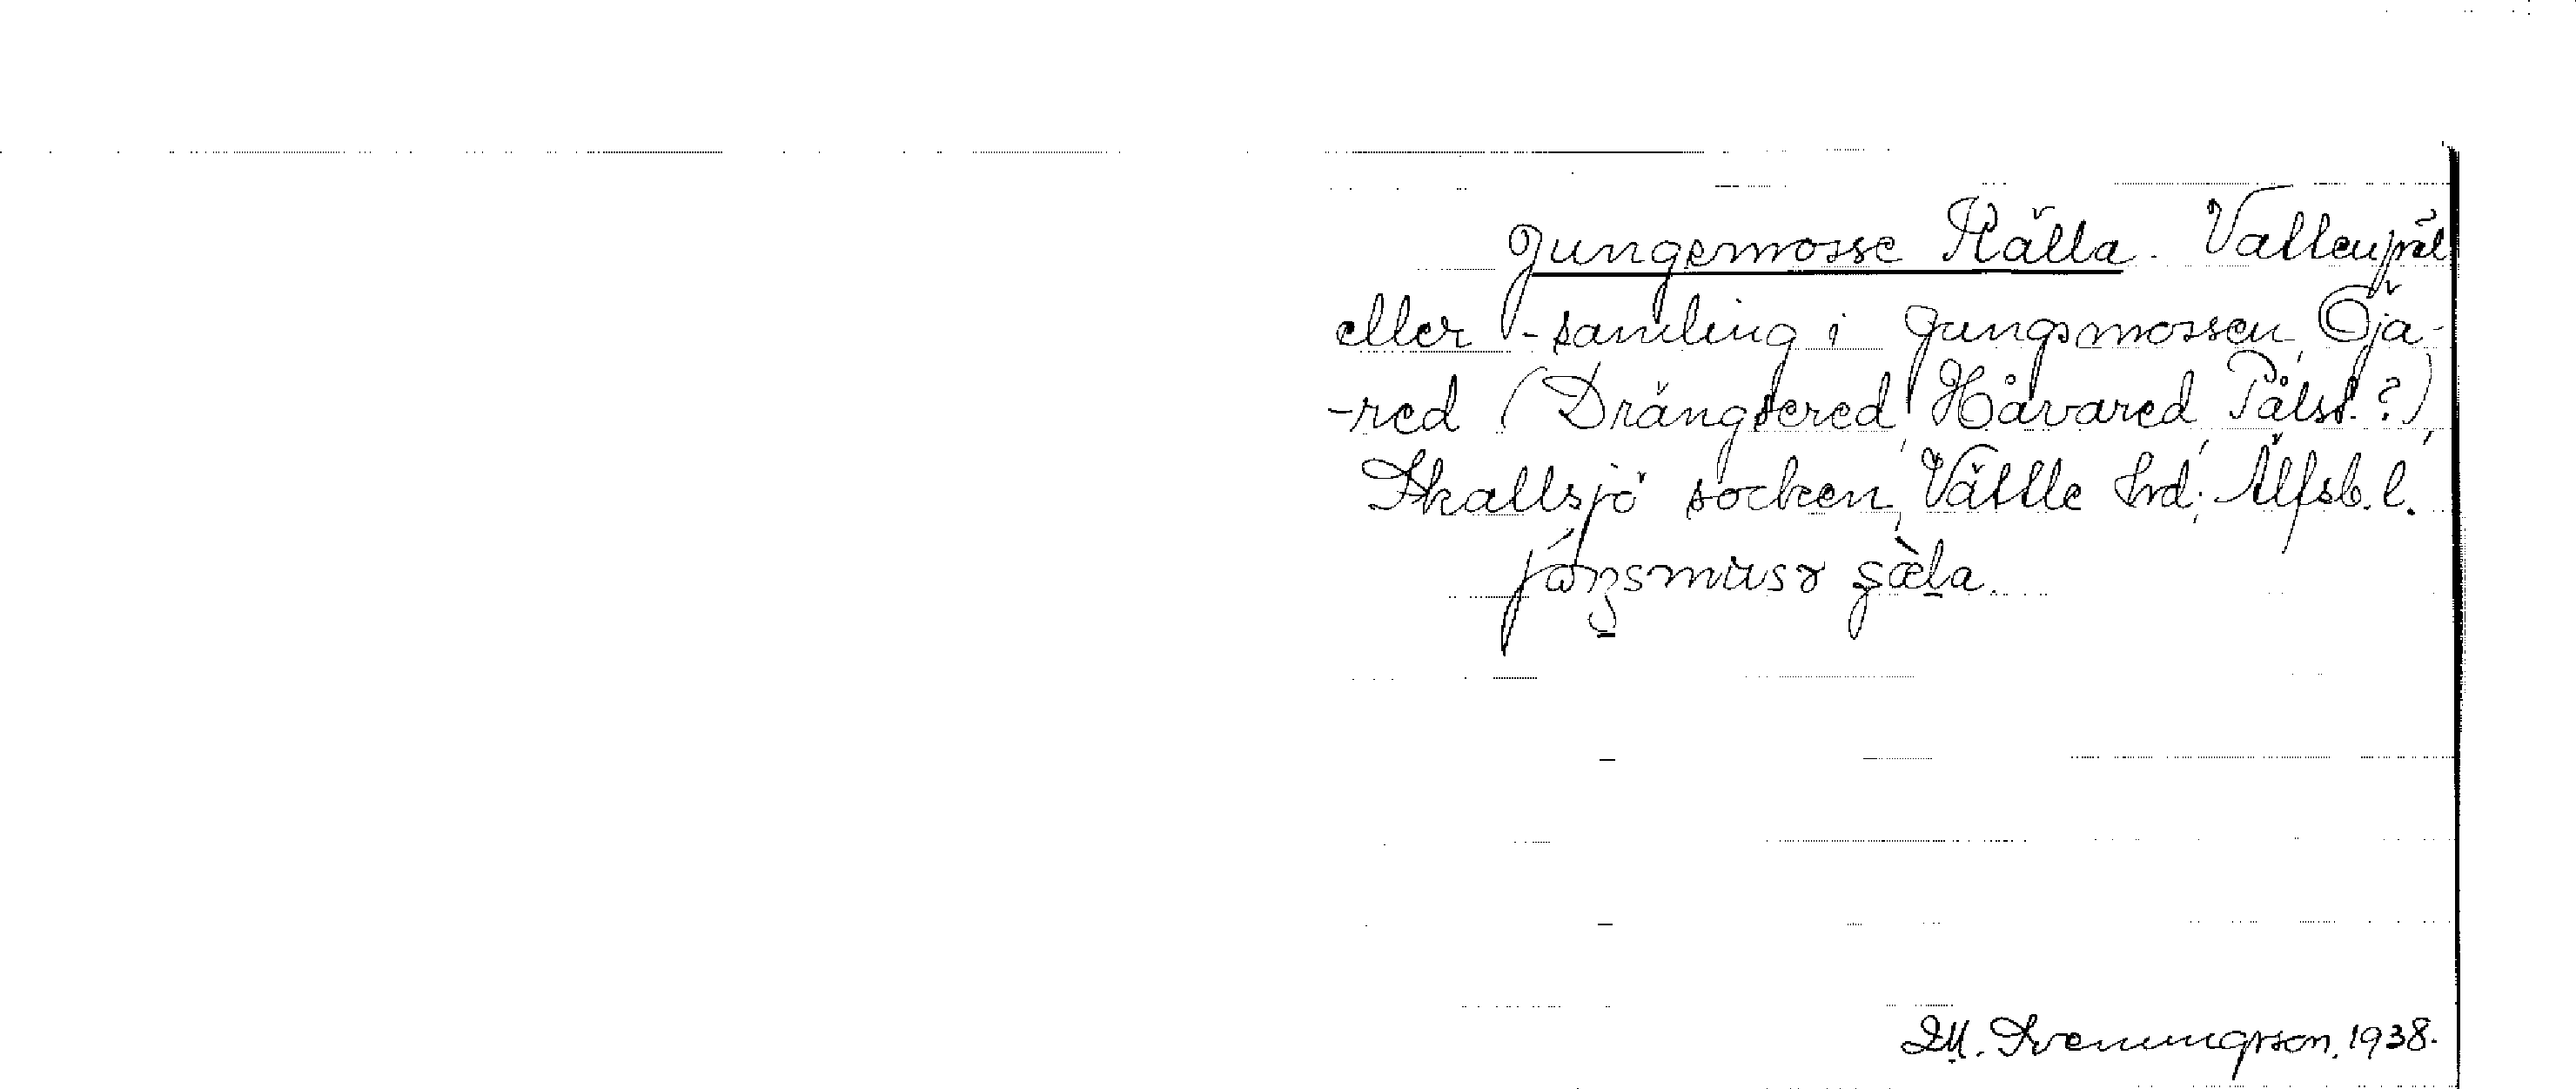 Jungsmosse Källa. Vattenpöl
eller -samling i Jungsmossen, Öja-
-red (Drängsered, Håvared, Pålst.?),
Skallsjö socken, Vättle hrd; Älfsb. l.
Svenungsson, 1938.